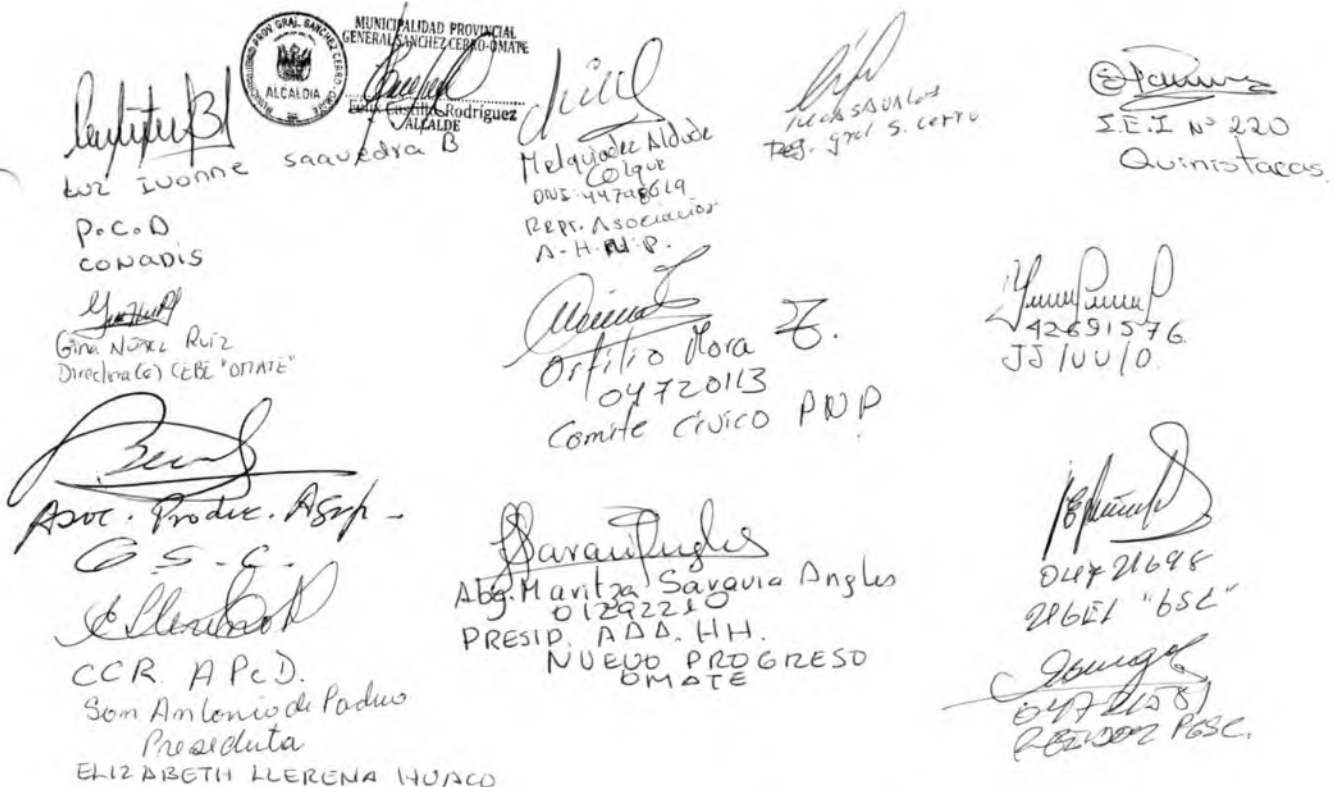 MUNICIPALIDAD PROV. GRAL. SANCHEZ CERRO - OMATE
ALCALDIA
MUNICIPALIDAD PROVINCIAL
GENERAL SANCHEZ CERRO-OMATE
Castillo Rodríguez
ALCALDE
Luz Ivonne Saavedra B
P.C.D
CONADIS
Gina Núñez Ruiz
Directora (e) CEBE "OMATE"
Asoc. Produc. Agrp -
G.S.C.
CCR. APcD.
San Antonio de Padua
Presedenta
ELIZABETH LLERENA HUACO
Melquiadez
Colque
DNI:
Repr. Asociación
A-H-N.P.
Orfilio Mora Z.
04720113
Comite Cívico PNP
Abg. Maritza Saravia Angles
01292210
PRESID. AAA. HH.
NUEVO PROGRESO
OMATE
gral S. cerro
I.E.I Nº 220
Quinistacas.
42691576
JJ/UU/O.
04721698
"GSC"